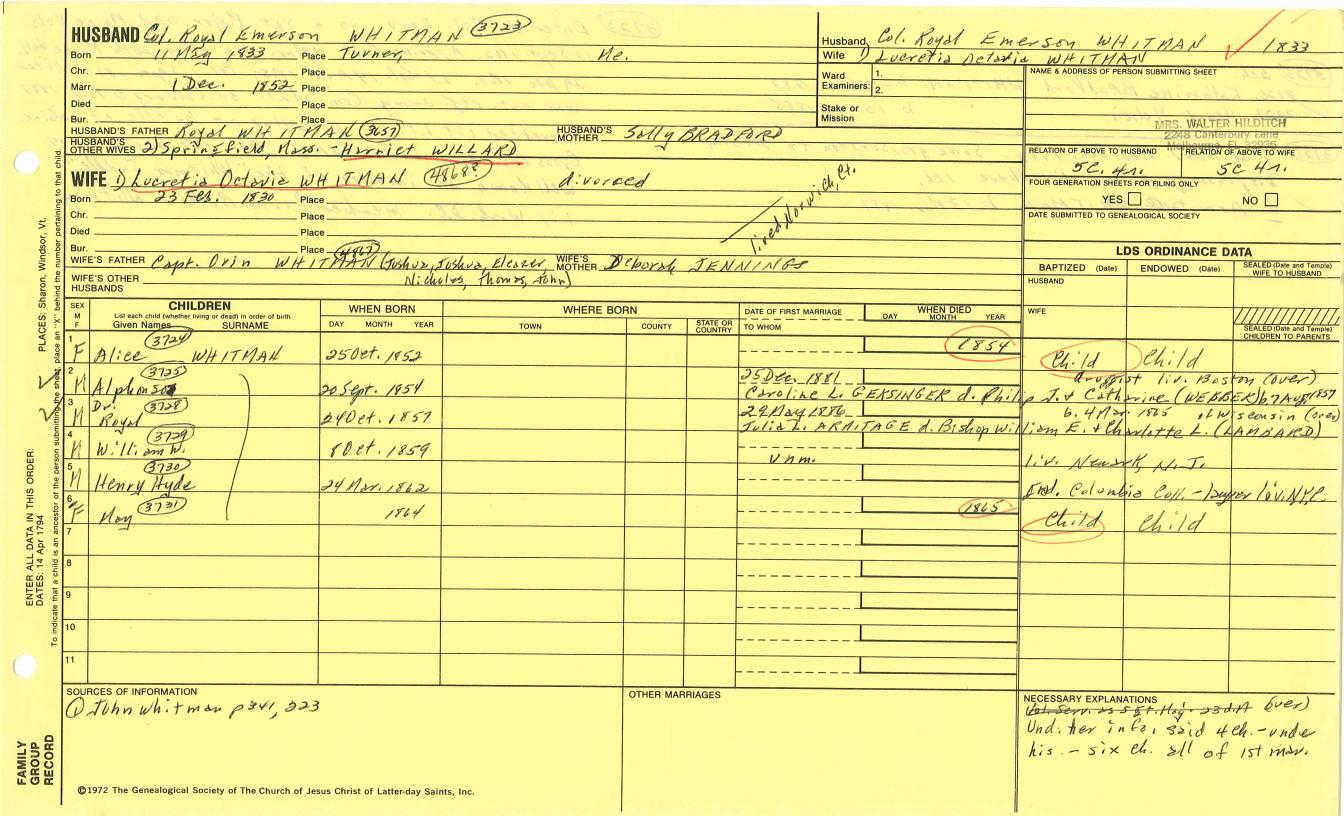 HUSBAND Col. Royal Emerson WHITMAN 3723
Born 11 May 1833 Place Turner, Me.
Chr. Place
Marr. 1 Dec. 1852 Place
Died Place
Bur. Place
HUSBAND'S FATHER Royal WHITMAN 3657 HUSBAND'S MOTHER Sally BRADFORD
HUSBAND'S OTHER WIVES 2) Springfield, Mass. - Harriet WILLARD
WIFE 1) Lucretia Octavia WHITMAN 4868? divorced
Born 23 Feb. 1830 Place
Chr. Place
Died Place
Bur. Place 4867
lived Norwich, Ct.
WIFE'S FATHER Capt. Orin WHITMAN (Joshua, Joshua, Eleazer WIFE'S MOTHER Deborah JENNINGS
WIFE'S OTHER HUSBANDS Nicholas, Thomas, John)
Husband Col. Royal Emerson WHITMAN 1833
Wife 1) Lucretia Octavia WHITMAN
Ward Examiners: 1.
2.
Stake or Mission
NAME & ADDRESS OF PERSON SUBMITTING SHEET
MRS. WALTER HILDITCH
2248 Canterbury Lane
Melbourne, FL 32935
RELATION OF ABOVE TO HUSBAND RELATION OF ABOVE TO WIFE
5C. 4r. 5C 4r.
FOUR GENERATION SHEETS FOR FILING ONLY
YES NO
DATE SUBMITTED TO GENEALOGICAL SOCIETY
LDS ORDINANCE DATA
BAPTIZED (Date) ENDOWED (Date) SEALED (Date and Temple) WIFE TO HUSBAND
HUSBAND
WIFE
SEALED (Date and Temple) CHILDREN TO PARENTS
SEX M F
CHILDREN
List each child (whether living or dead) in order of birth
Given Names SURNAME
WHEN BORN
DAY MONTH YEAR
WHERE BORN
TOWN COUNTY STATE OR COUNTRY
DATE OF FIRST MARRIAGE
TO WHOM
WHEN DIED
DAY MONTH YEAR
1 F Alice WHITMAN 3724 25 Oct. 1852 1854 Child Child
2 M Alphonso 3725 20 Sept. 1854 25 Dec. 1881 druggist liv. Boston (over)
Caroline L. GEKSINGER d. Philip J. & Catharine (WEBBER) b. 7 Aug 1857
3 M Dr. Royal 3728 24 Oct. 1857 29 May 1886 b. 4 Mar. 1865 of Wisconsin (over)
Julia L. ARMITAGE d. Bishop William E. & Charlotte L. (LAMBARD)
4 M William W. 3729 8 Oct. 1859 unm. liv. Newark, N.J.
5 M Henry Hyde 3730 24 Mar. 1862 Grad. Columbia Coll. - lawyer liv. NYC.
6 F May 3731 1864 1865 Child Child
7
8
9
10
11
SOURCES OF INFORMATION
① John Whitman p 341, 223
OTHER MARRIAGES
NECESSARY EXPLANATIONS
(over)
Und. her info. said 4 ch. - under
his - six ch. all of 1st mar.
©1972 The Genealogical Society of The Church of Jesus Christ of Latter-day Saints, Inc.
FAMILY GROUP RECORD
ENTER ALL DATA IN THIS ORDER:
DATES: 14 Apr 1794
PLACES: Sharon, Windsor, Vt.
To indicate that a child is an ancestor of the person submitting the sheet, place an "X" behind the number pertaining to that child.